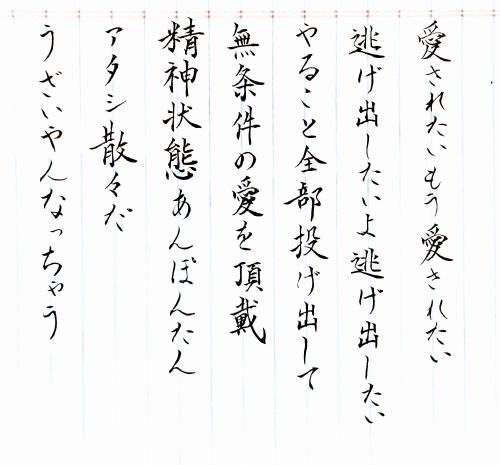 愛されたいもう愛されたい
逃げ出したいよ逃げ出したい
やること全部投げ出して
無条件の愛を頂戴
精神状態あんぽんたん
アタシ散々だ
うざいやんなっちゃう